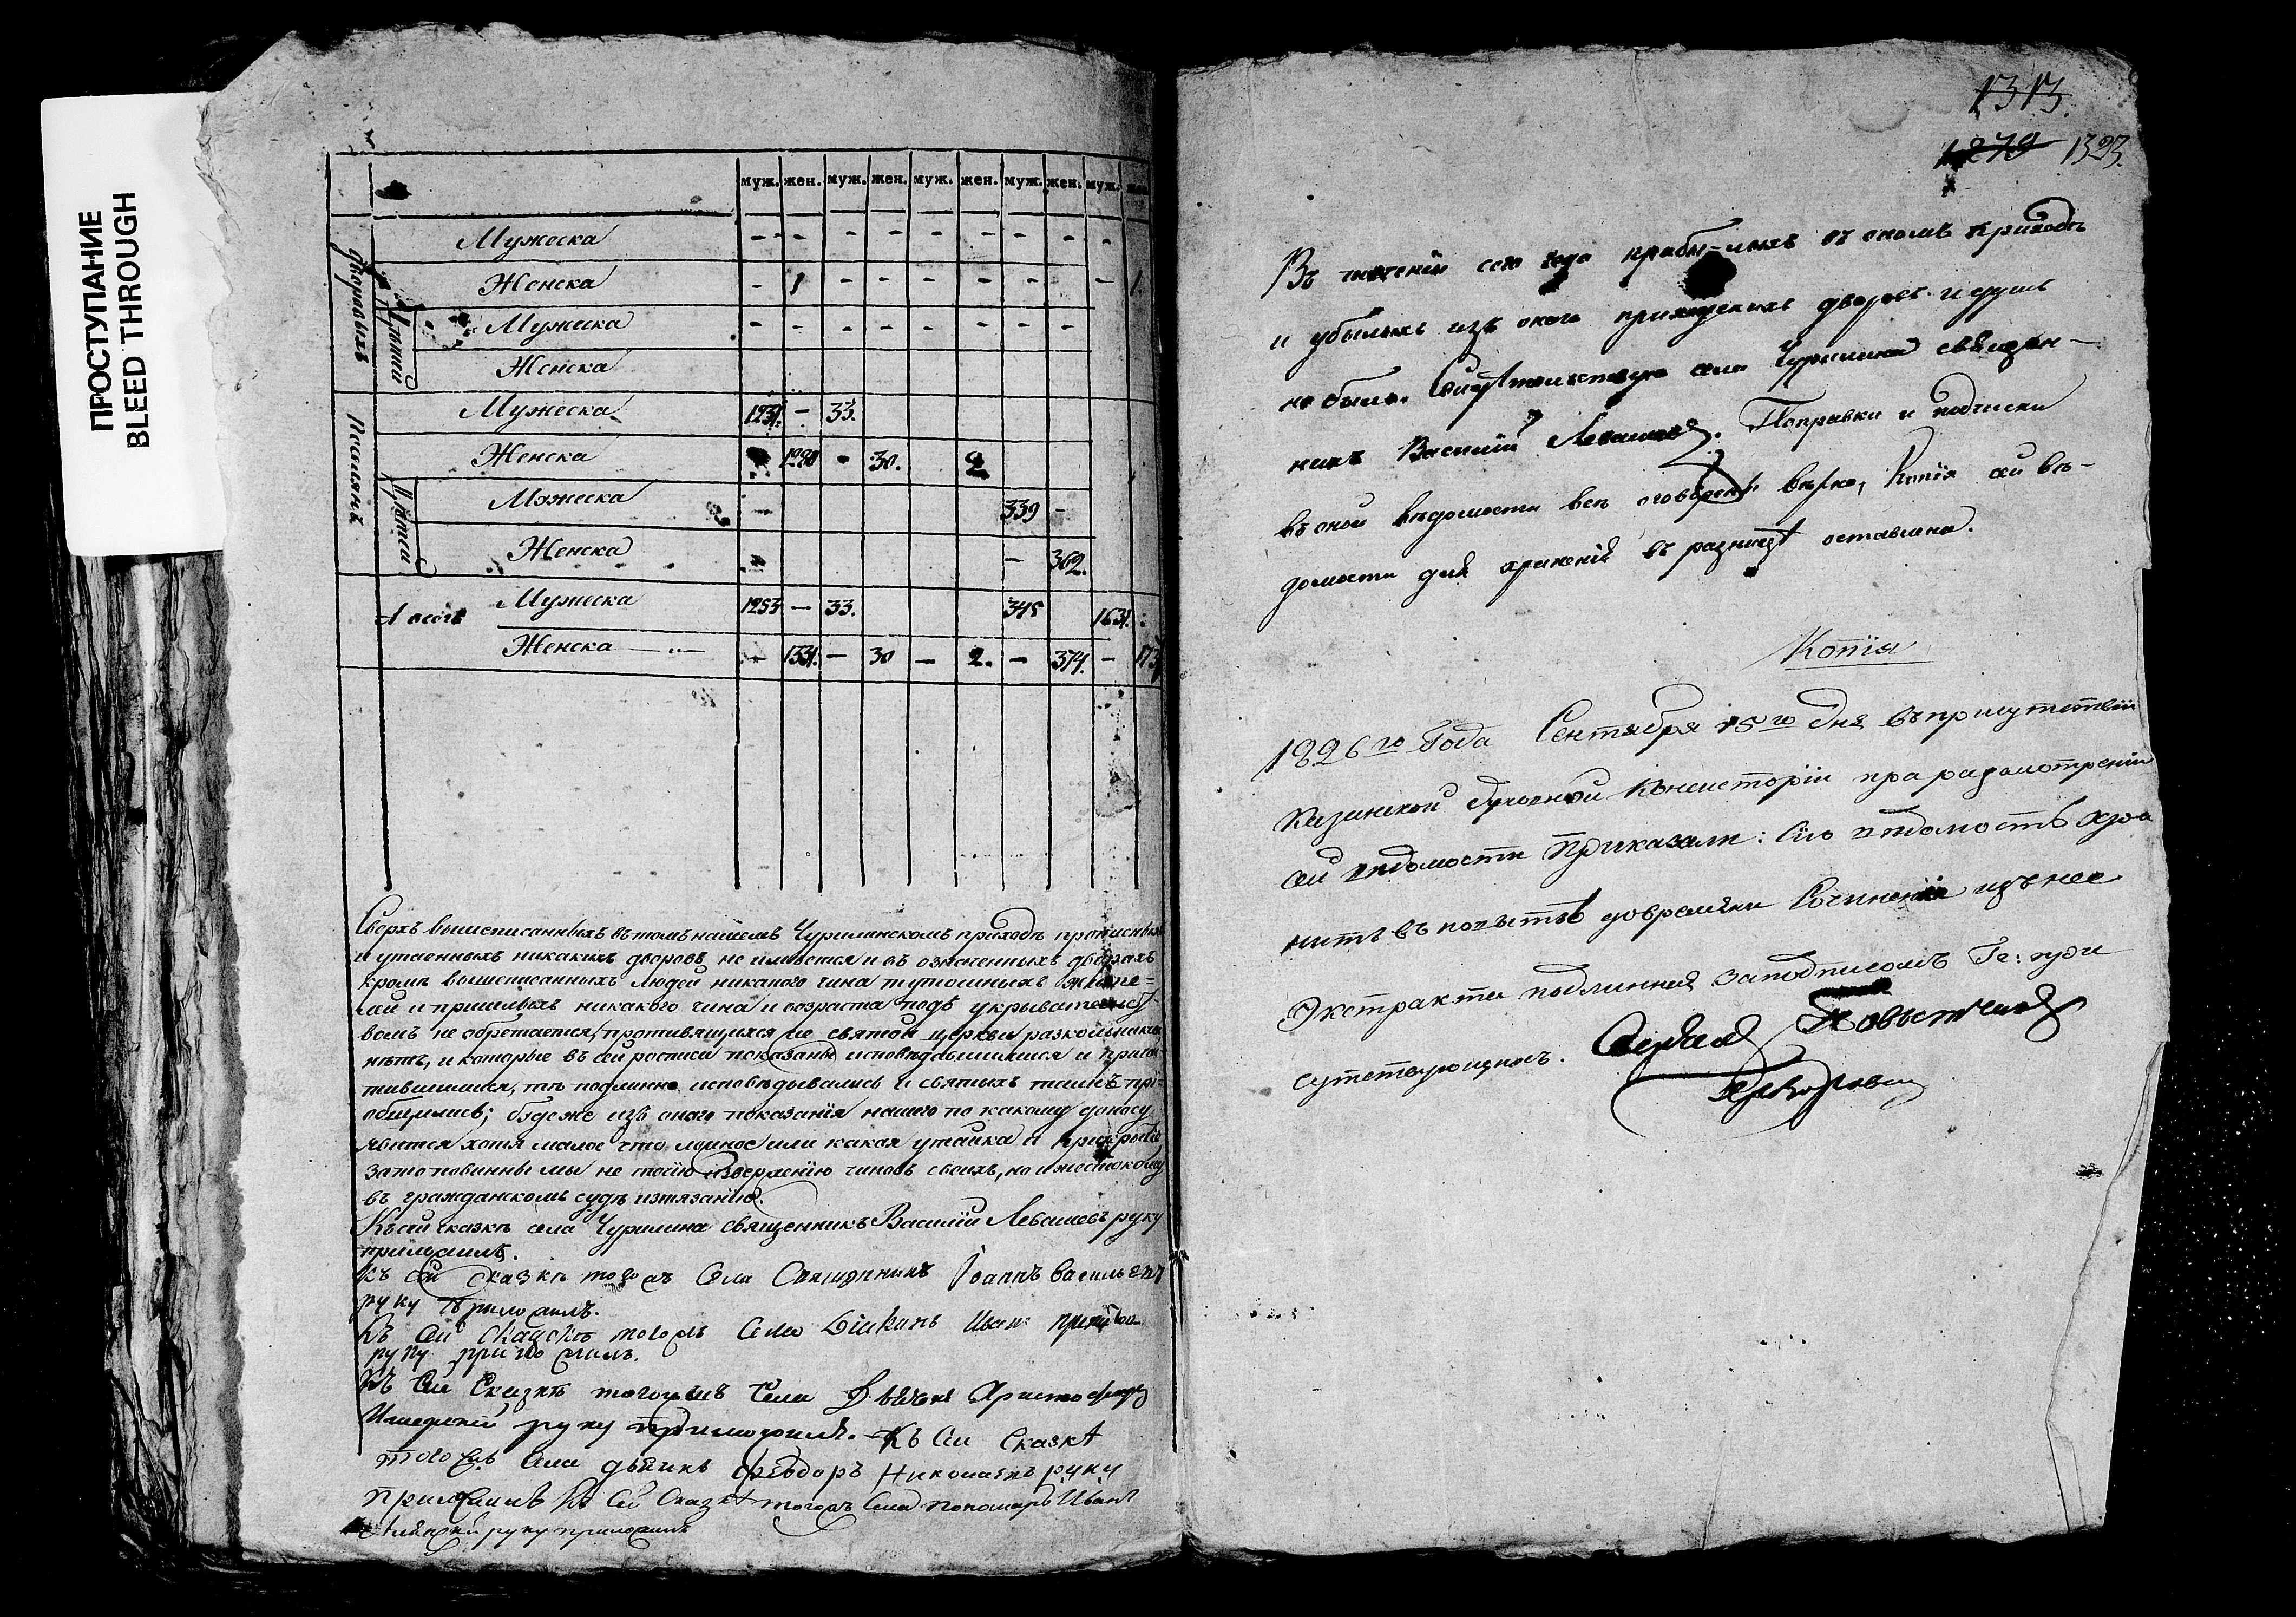 ПРОСТУПАНИЕ
BLEED THROUGH
муж. жен. муж. жен. муж. жен. муж. жен. муж.
дворовыхъ
Мужеска - - - - - - - - -
Женска - 1 - - - - - - 1.
Мужеска - - - - - - - -
Женска
Поселянъ
Мужеска 1231. - 33.
Женска 1290 - 30. 2
Мужеска - 339 -
Женска - 362.
А всего Мужеска 1253 - 33. 345 1631.
Женска - 1331. - 30 - 2. - 374. - 173
Сверхъ вышеписанныхъ въ томъ нашемъ Чурилинскомъ приходѣ прописныхъ
и утаенныхъ никакихъ дворовъ не имѣется и въ означенныхъ дворахъ
кромѣ вышеписанныхъ людей никакого чина
и пришлыхъ никакого чина и возраста подъ укрывательст
вомъ не обретается, противящихся же святой церкви раскольниковъ
нѣтъ, и которые въ сей росписи показаны исповѣдавшимися и прича
тившимися, тѣ подлинно исповѣдывались и святыхъ таинъ прі=
общились; будеже изъ онаго показанія нашего по какому доносу
явится хотя малое что ложное или какая утайка и прикрытіе
зато повинны мы не токмо изверженію чиновъ своихъ, но и жестокому
въ гражданскомъ судѣ истязанію.
Къ сей сказкѣ села Чурилина священникъ Василій Левашевъ руку
приложилъ.
Къ сей сказкѣ тогожъ села Священникъ Іоаннъ Васильевъ
руку приложилъ.
Къ сей сказкѣ тогожъ села Діаконъ Иванъ
руку приложилъ.
Къ сей Сказкѣ тогожъ Села Дьячекъ
руку приложилъ. Къ сей Сказкѣ
тогожъ села дьячекъ Ѳеодоръ Николаевъ руку
приложилъ Къ сей Сказкѣ тогожъ Села пономарь Иванъ
руку приложилъ
1313.
1279 1323.
Въ теченіи сего года прибылыхъ въ ономъ приходѣ
и убылыхъ изъ онаго приходскихъ дворовъ и душъ
не было. Свидѣтельствую села Чурилина священ-
никъ Василій Левашевъ. Поправки и подчистки
въ оной вѣдомости всѣ оговорены вѣрно, Копія сей вѣ-
домости для храненія въ ризницѣ оставлена.
Копія
1826го Года Сентября 15го дня въ присутствіи
Казанской духовной Консисторіи при разсмотреніи
сей вѣдомости Приказали: Сію вѣдомость хра
нить въ повытьѣ до времяни Сочиненія изъ нее
Экстракта подлинная заподписомъ Гг: при
сутствующихъ.